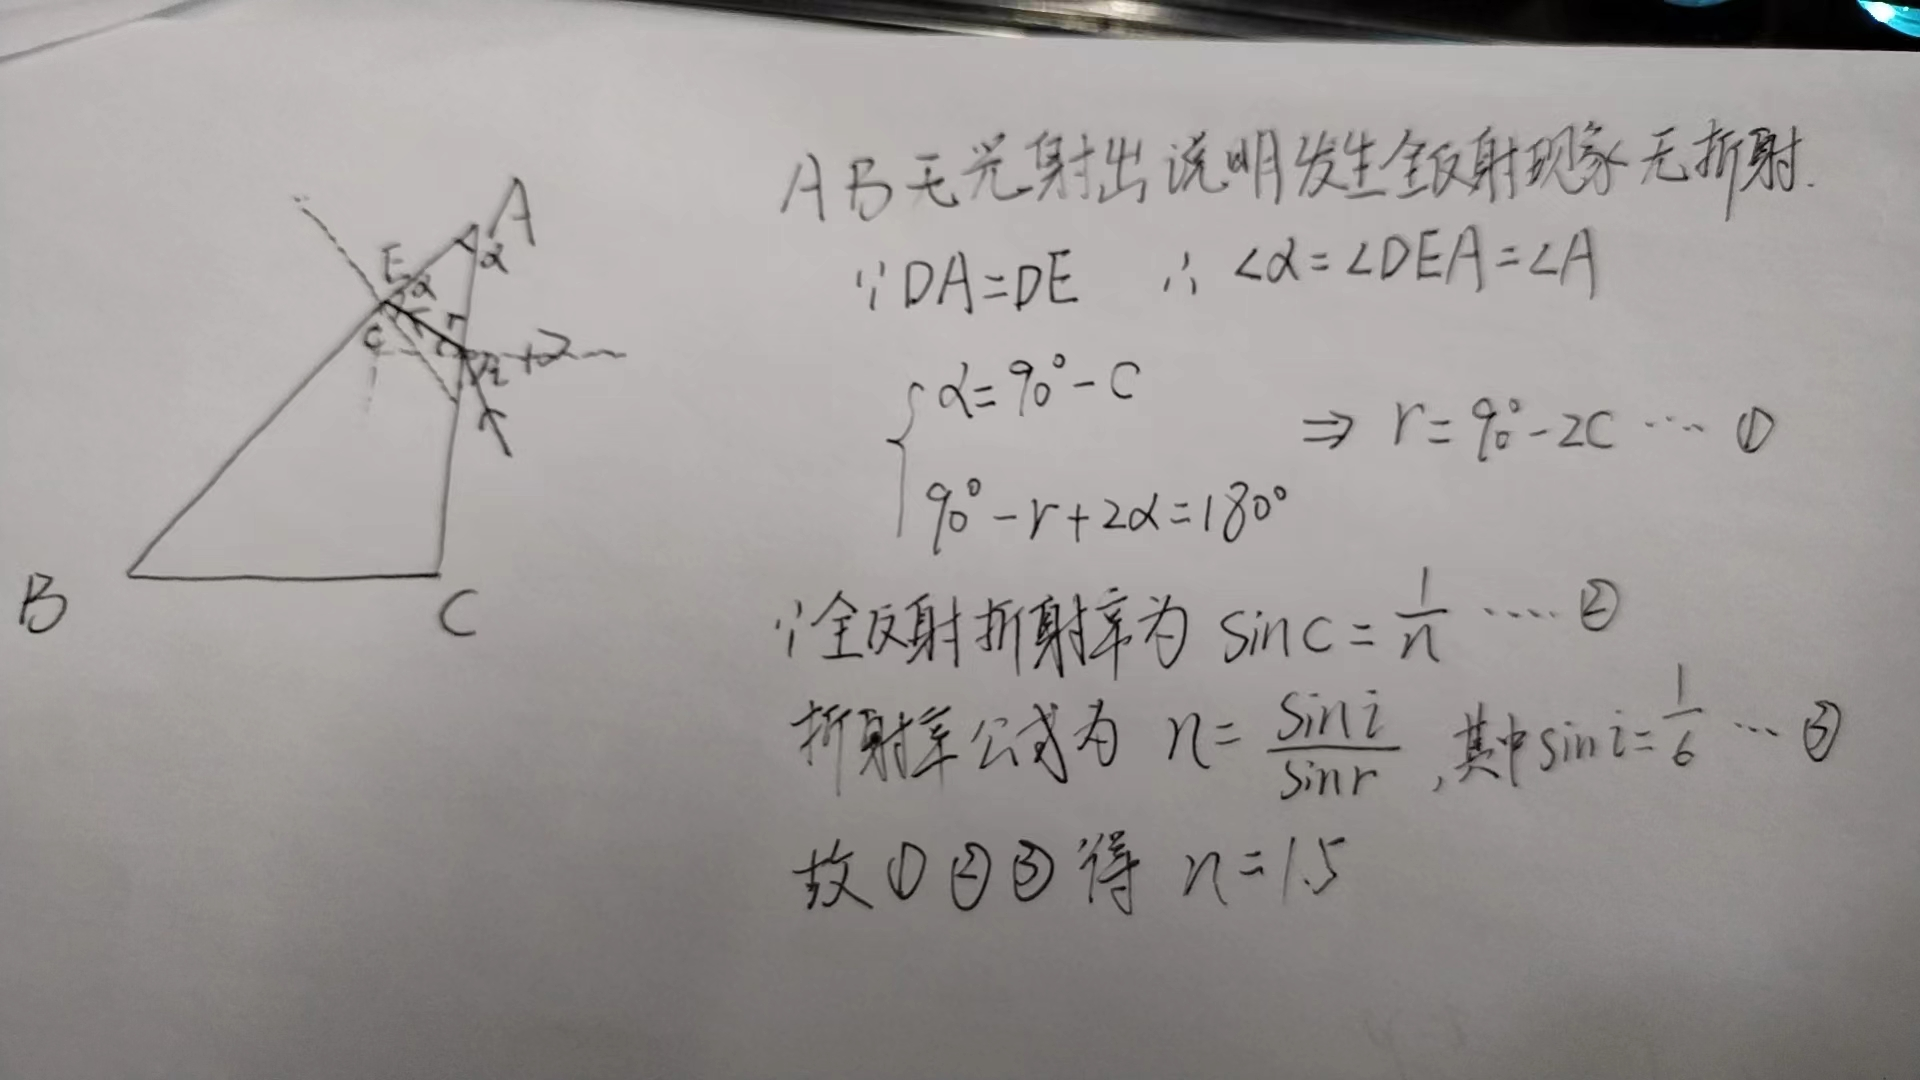 A
E
α
α
r
C
D
i
B
C
AB无光射出说明发生全反射现象无折射.
∵DA=DE ∴ ∠α=∠DEA=∠A
α=90°-C
⇒ r=90°-2C ···· ①
90°-r+2α=180°
∵全反射折射率为 sinC=1/n ····· ②
折射率公式为 n=sini/sinr,其中sini=1/6 ··· ③
故①②③得 n=1.5